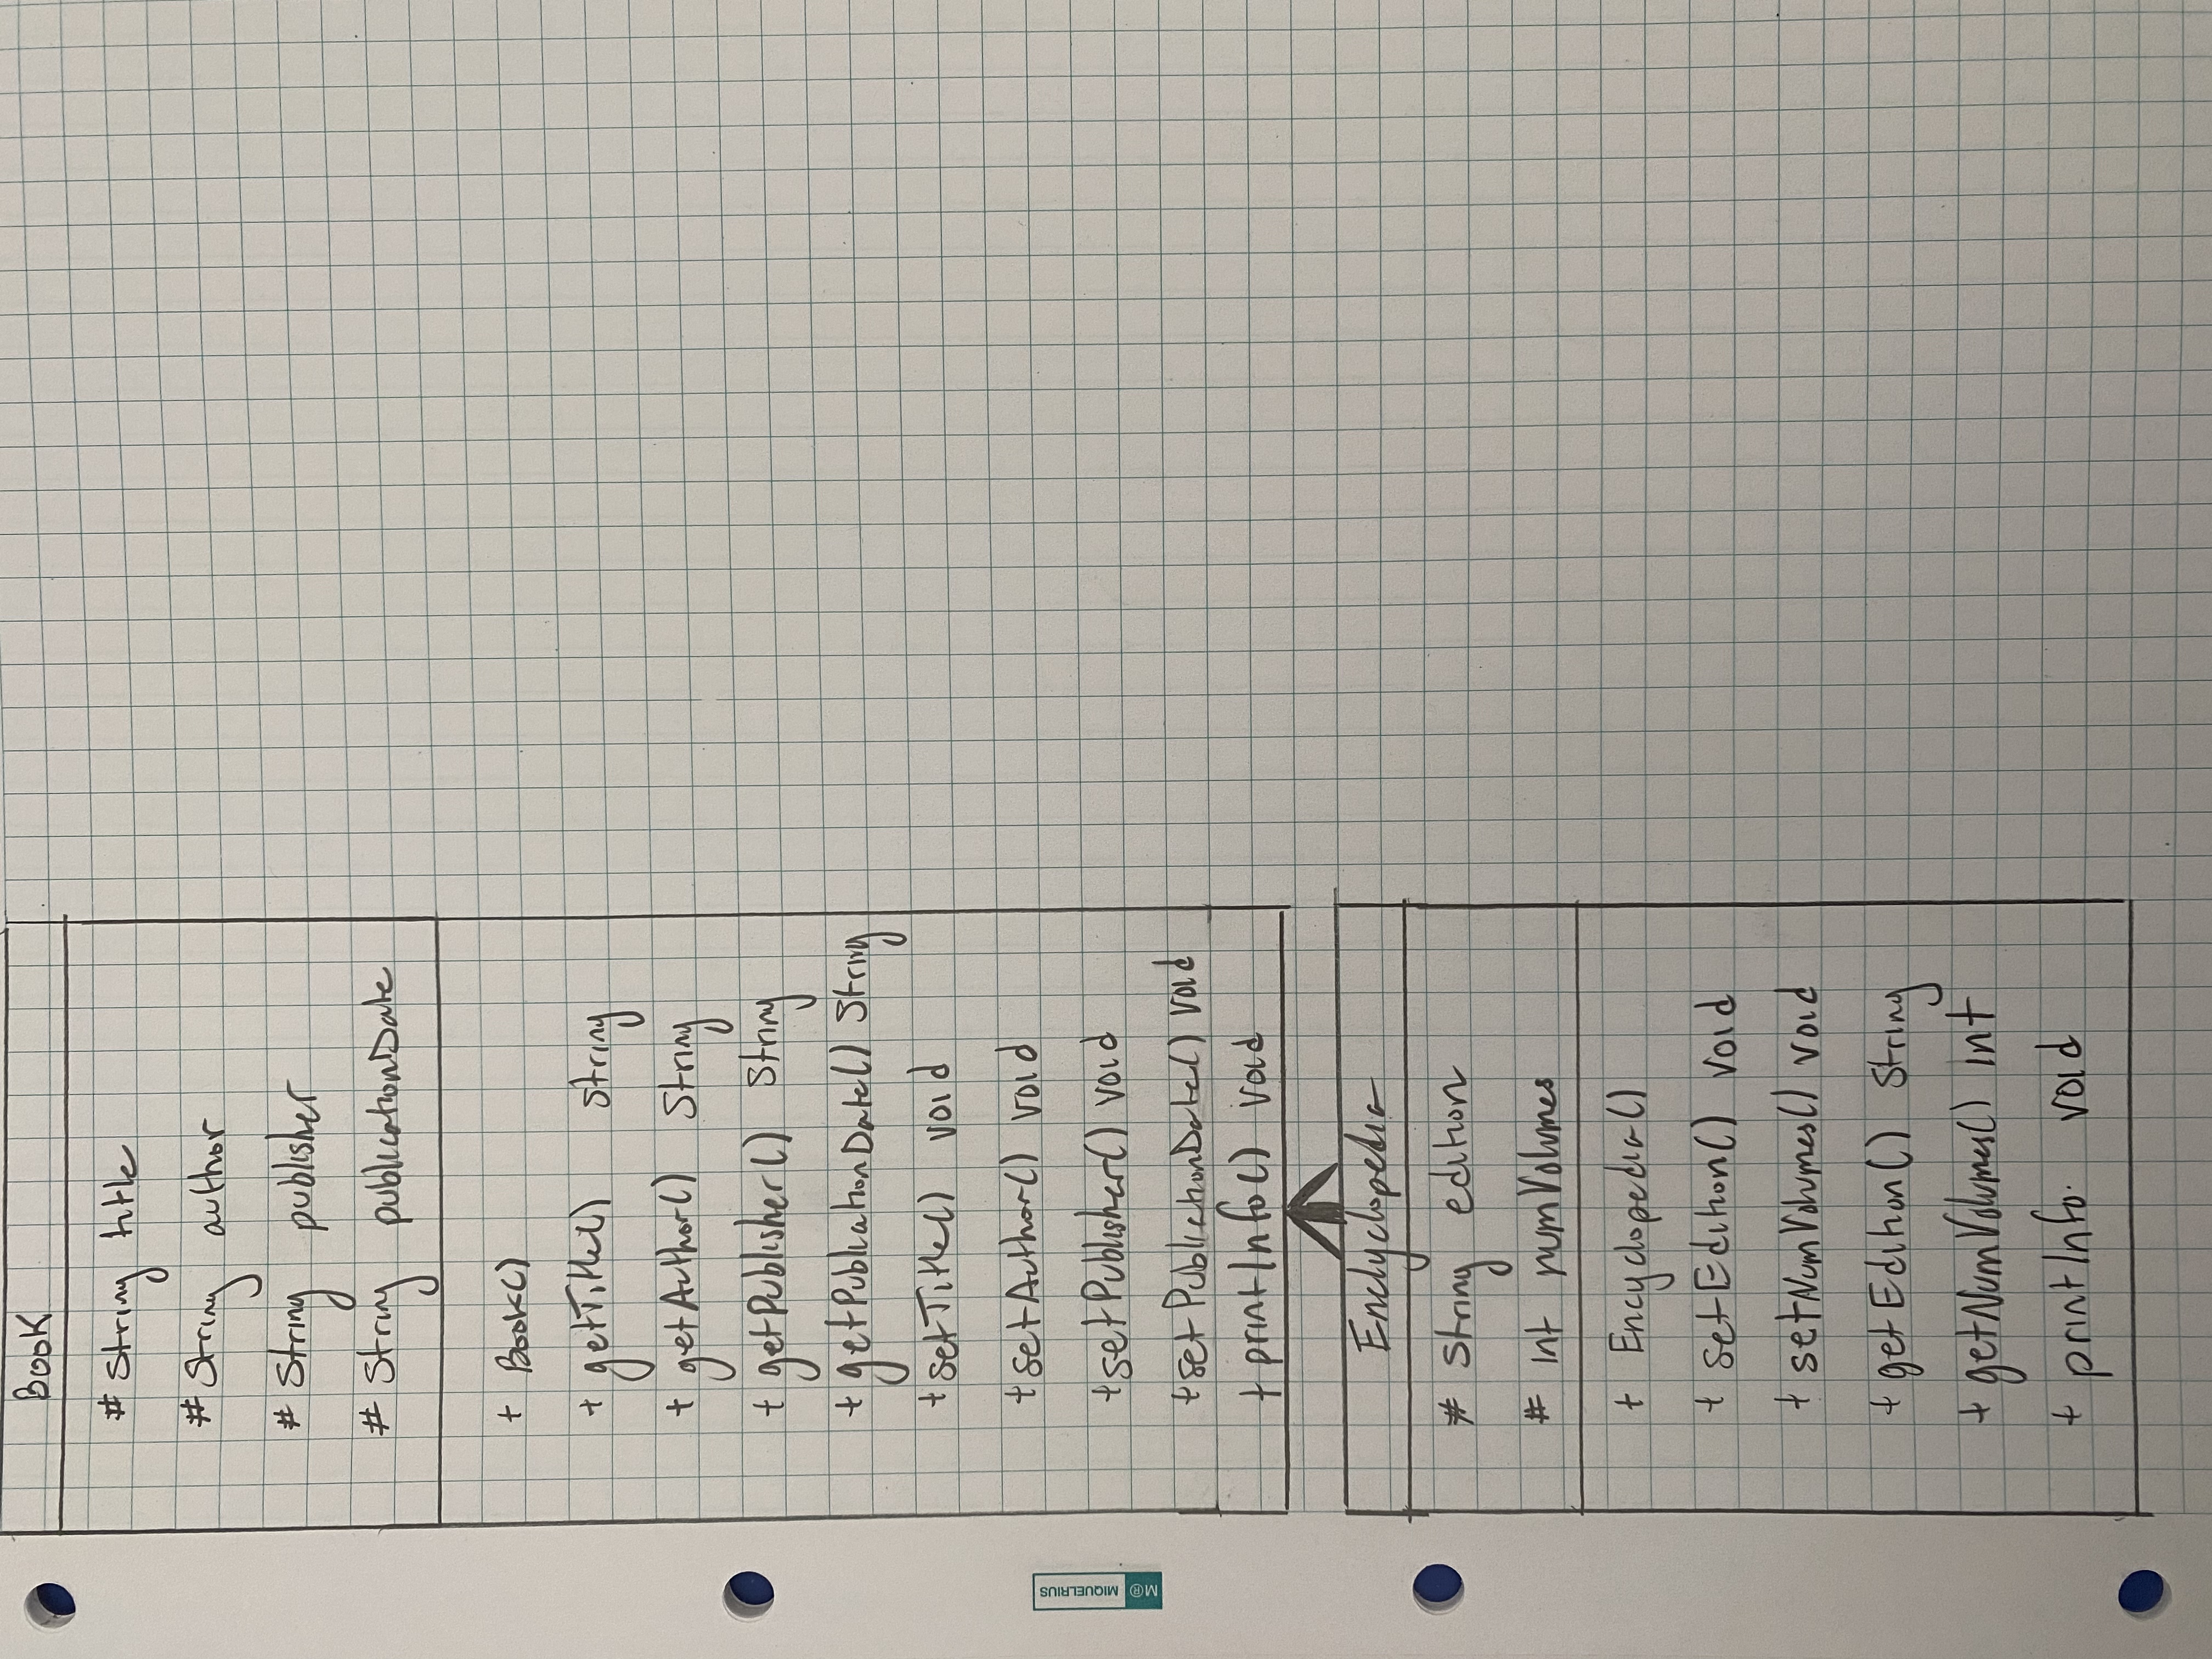 Book
# String title
# String author
# String publisher
# String publicationDate
+ Book()
+ getTitle() String
+ getAuthor() String
+ getPublisher() String
+ getPublicationDate() String
+ setTitle() void
+ setAuthor() void
+ setPublisher() void
+ setPublictionDate() void
+ printInfo() void
M® MIQUELRIUS
Enclyclopedia
# String edition
# int numVolumes
+ Encyclopedia()
+ setEdition() void
+ setNumVolumes() void
+ getEdition() String
+ getNumVolumes() int
+ printInfo. void